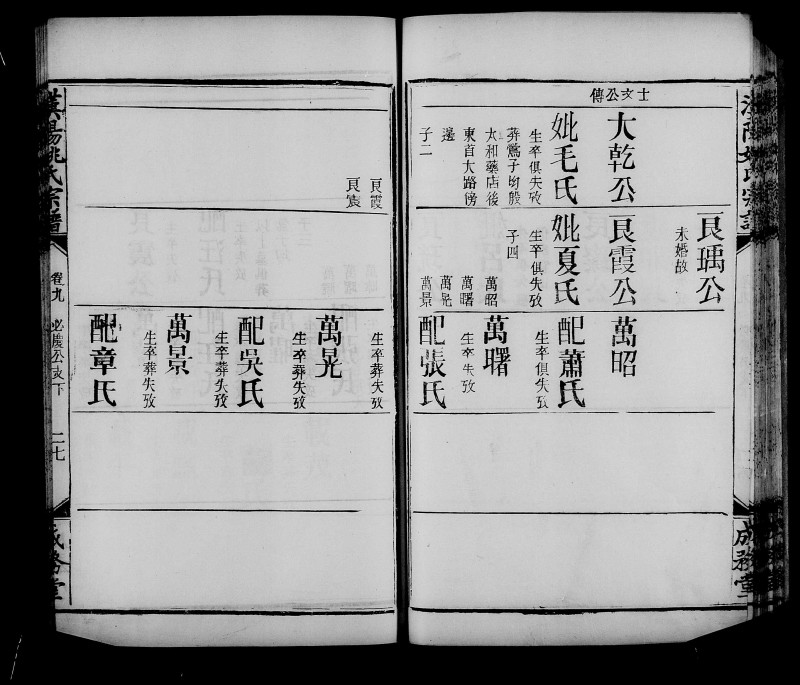 士文公傳
大乾公
妣毛氏
生卒俱失攷
葬鶯子均殷
太和藥店後
東首大路傍
邊
子二
艮瑀公
未婚故
艮霞公
妣夏氏
生卒俱失攷
子四
萬昭
萬曙
萬晃
萬景
萬昭
配蕭氏
生卒俱失攷
萬曙
生卒失攷
配張氏
成務堂
艮霞
艮宸
生卒葬失攷
萬晃
生卒葬失攷
配吳氏
生卒葬失攷
萬景
生卒葬失攷
配章氏
漢陽姚氏宗譜
卷九
必慶公支下
二七
成務堂